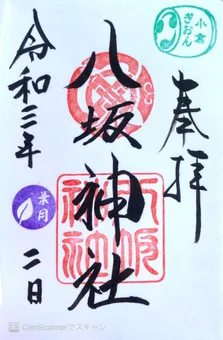 奉拝
小倉
ぎおん
八坂神社
八坂
神社
令和三年
葉月
二日
CamScannerでスキャン